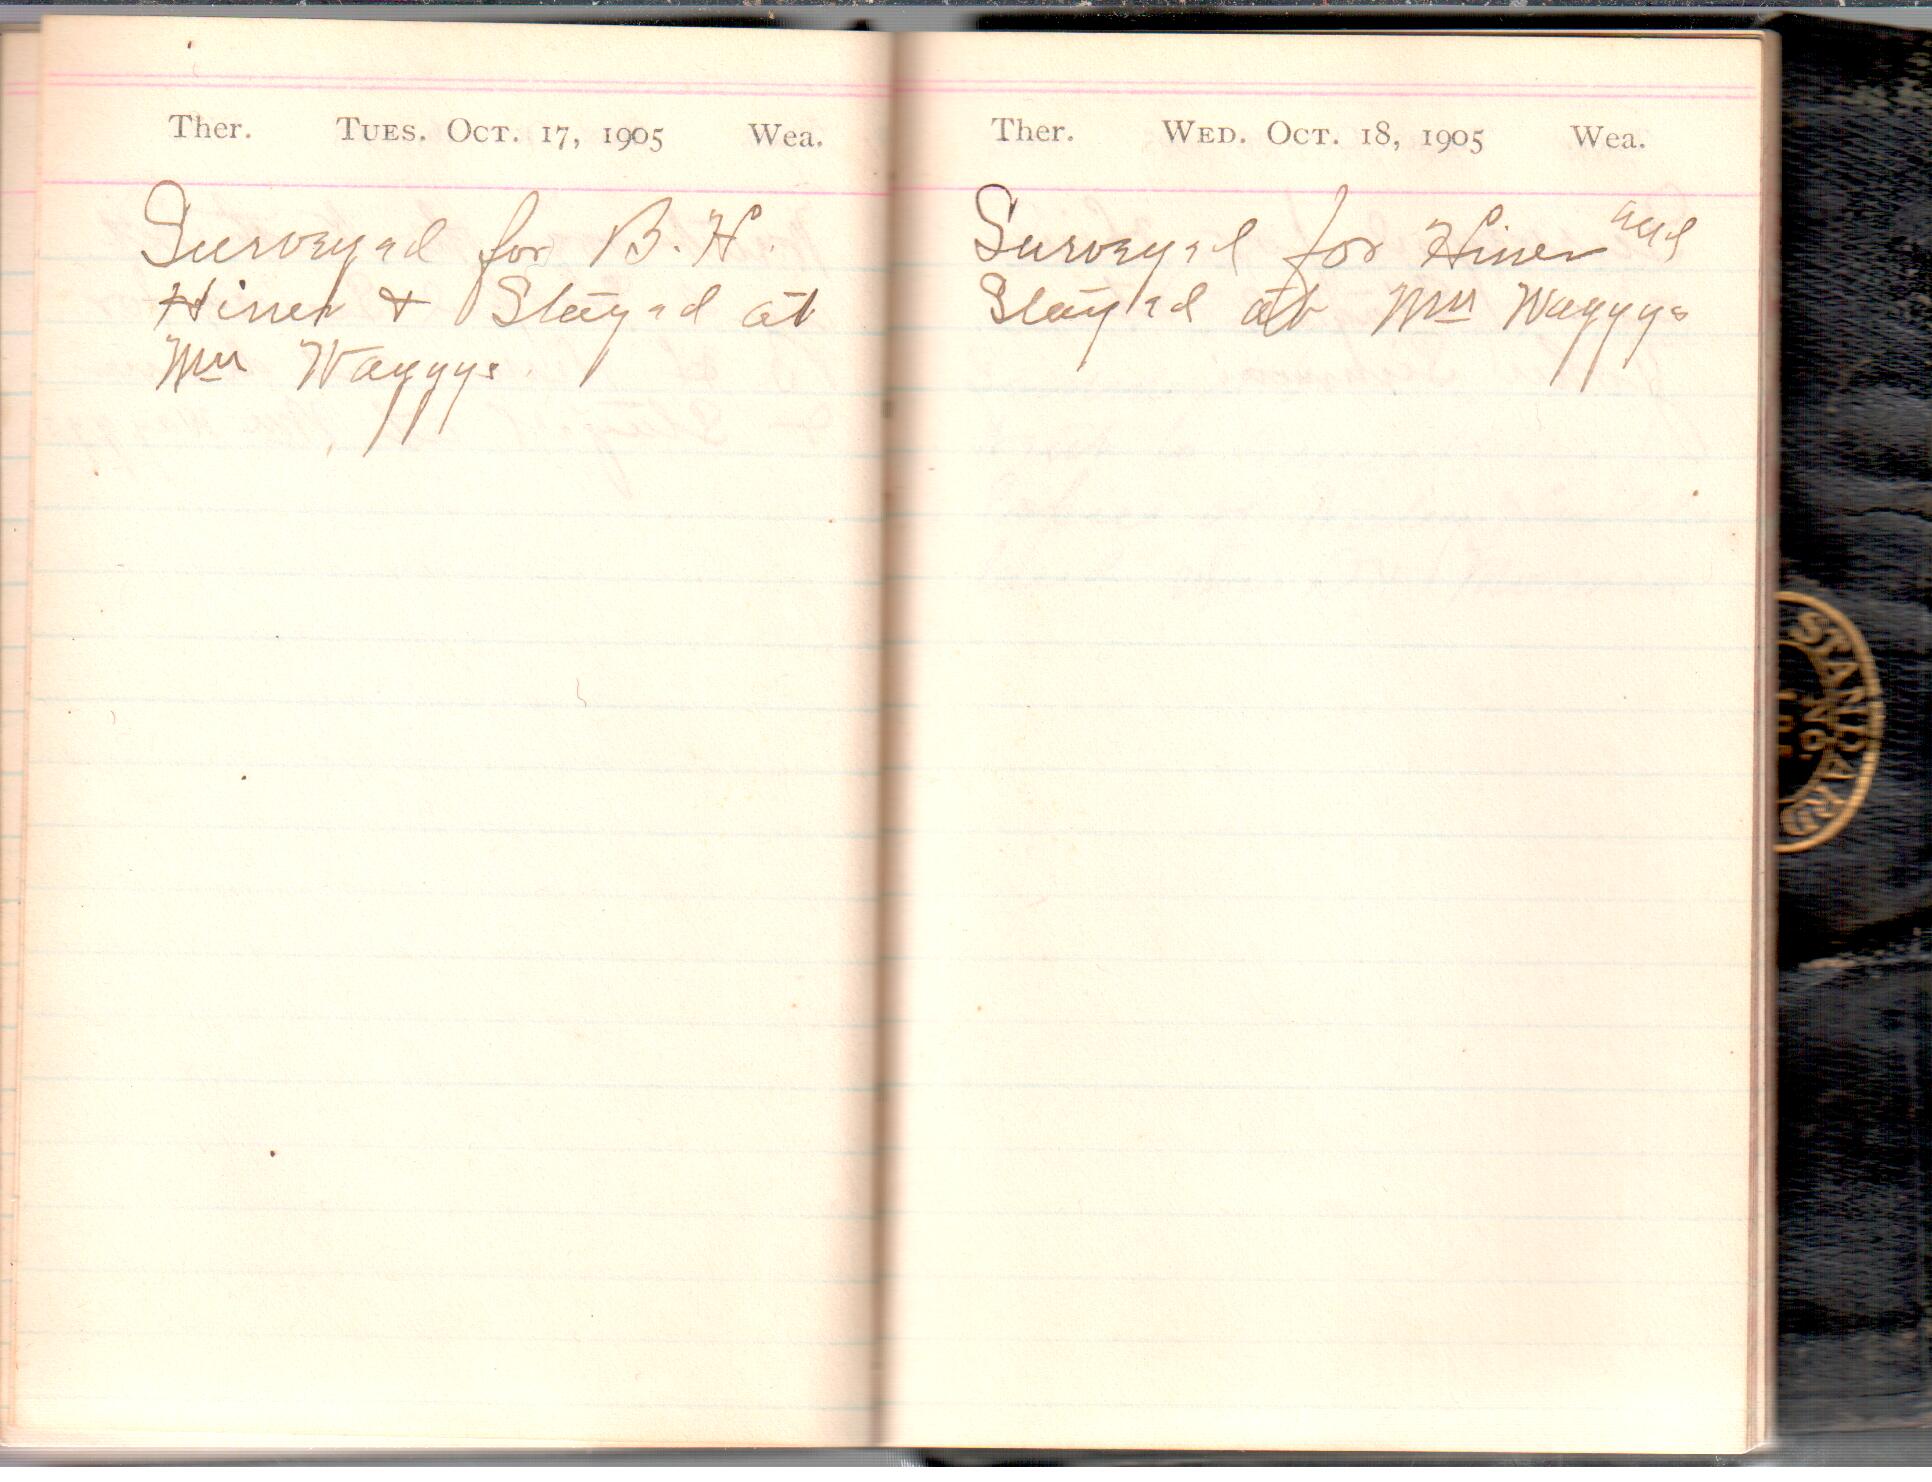 Ther. Tues. Oct. 17, 1905 Wea.
Surveyed for B. H.
Hiner & Stayed at
Mrs Waggys
Ther. Wed. Oct. 18, 1905 Wea.
Surveyed for Hiner and
Stayed at Mrs Waggys
STANDARD
NO.